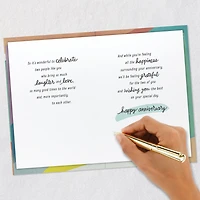 So it's wonderful to celebrate
two people like you
who bring so much
laughter and love,
so many good times to the world
and more importantly,
to each other.
And while you're feeling
all the happiness
surrounding your anniversary,
we'll be feeling grateful
for the two of you
and wishing you the best
on your special day.
happy anniversary